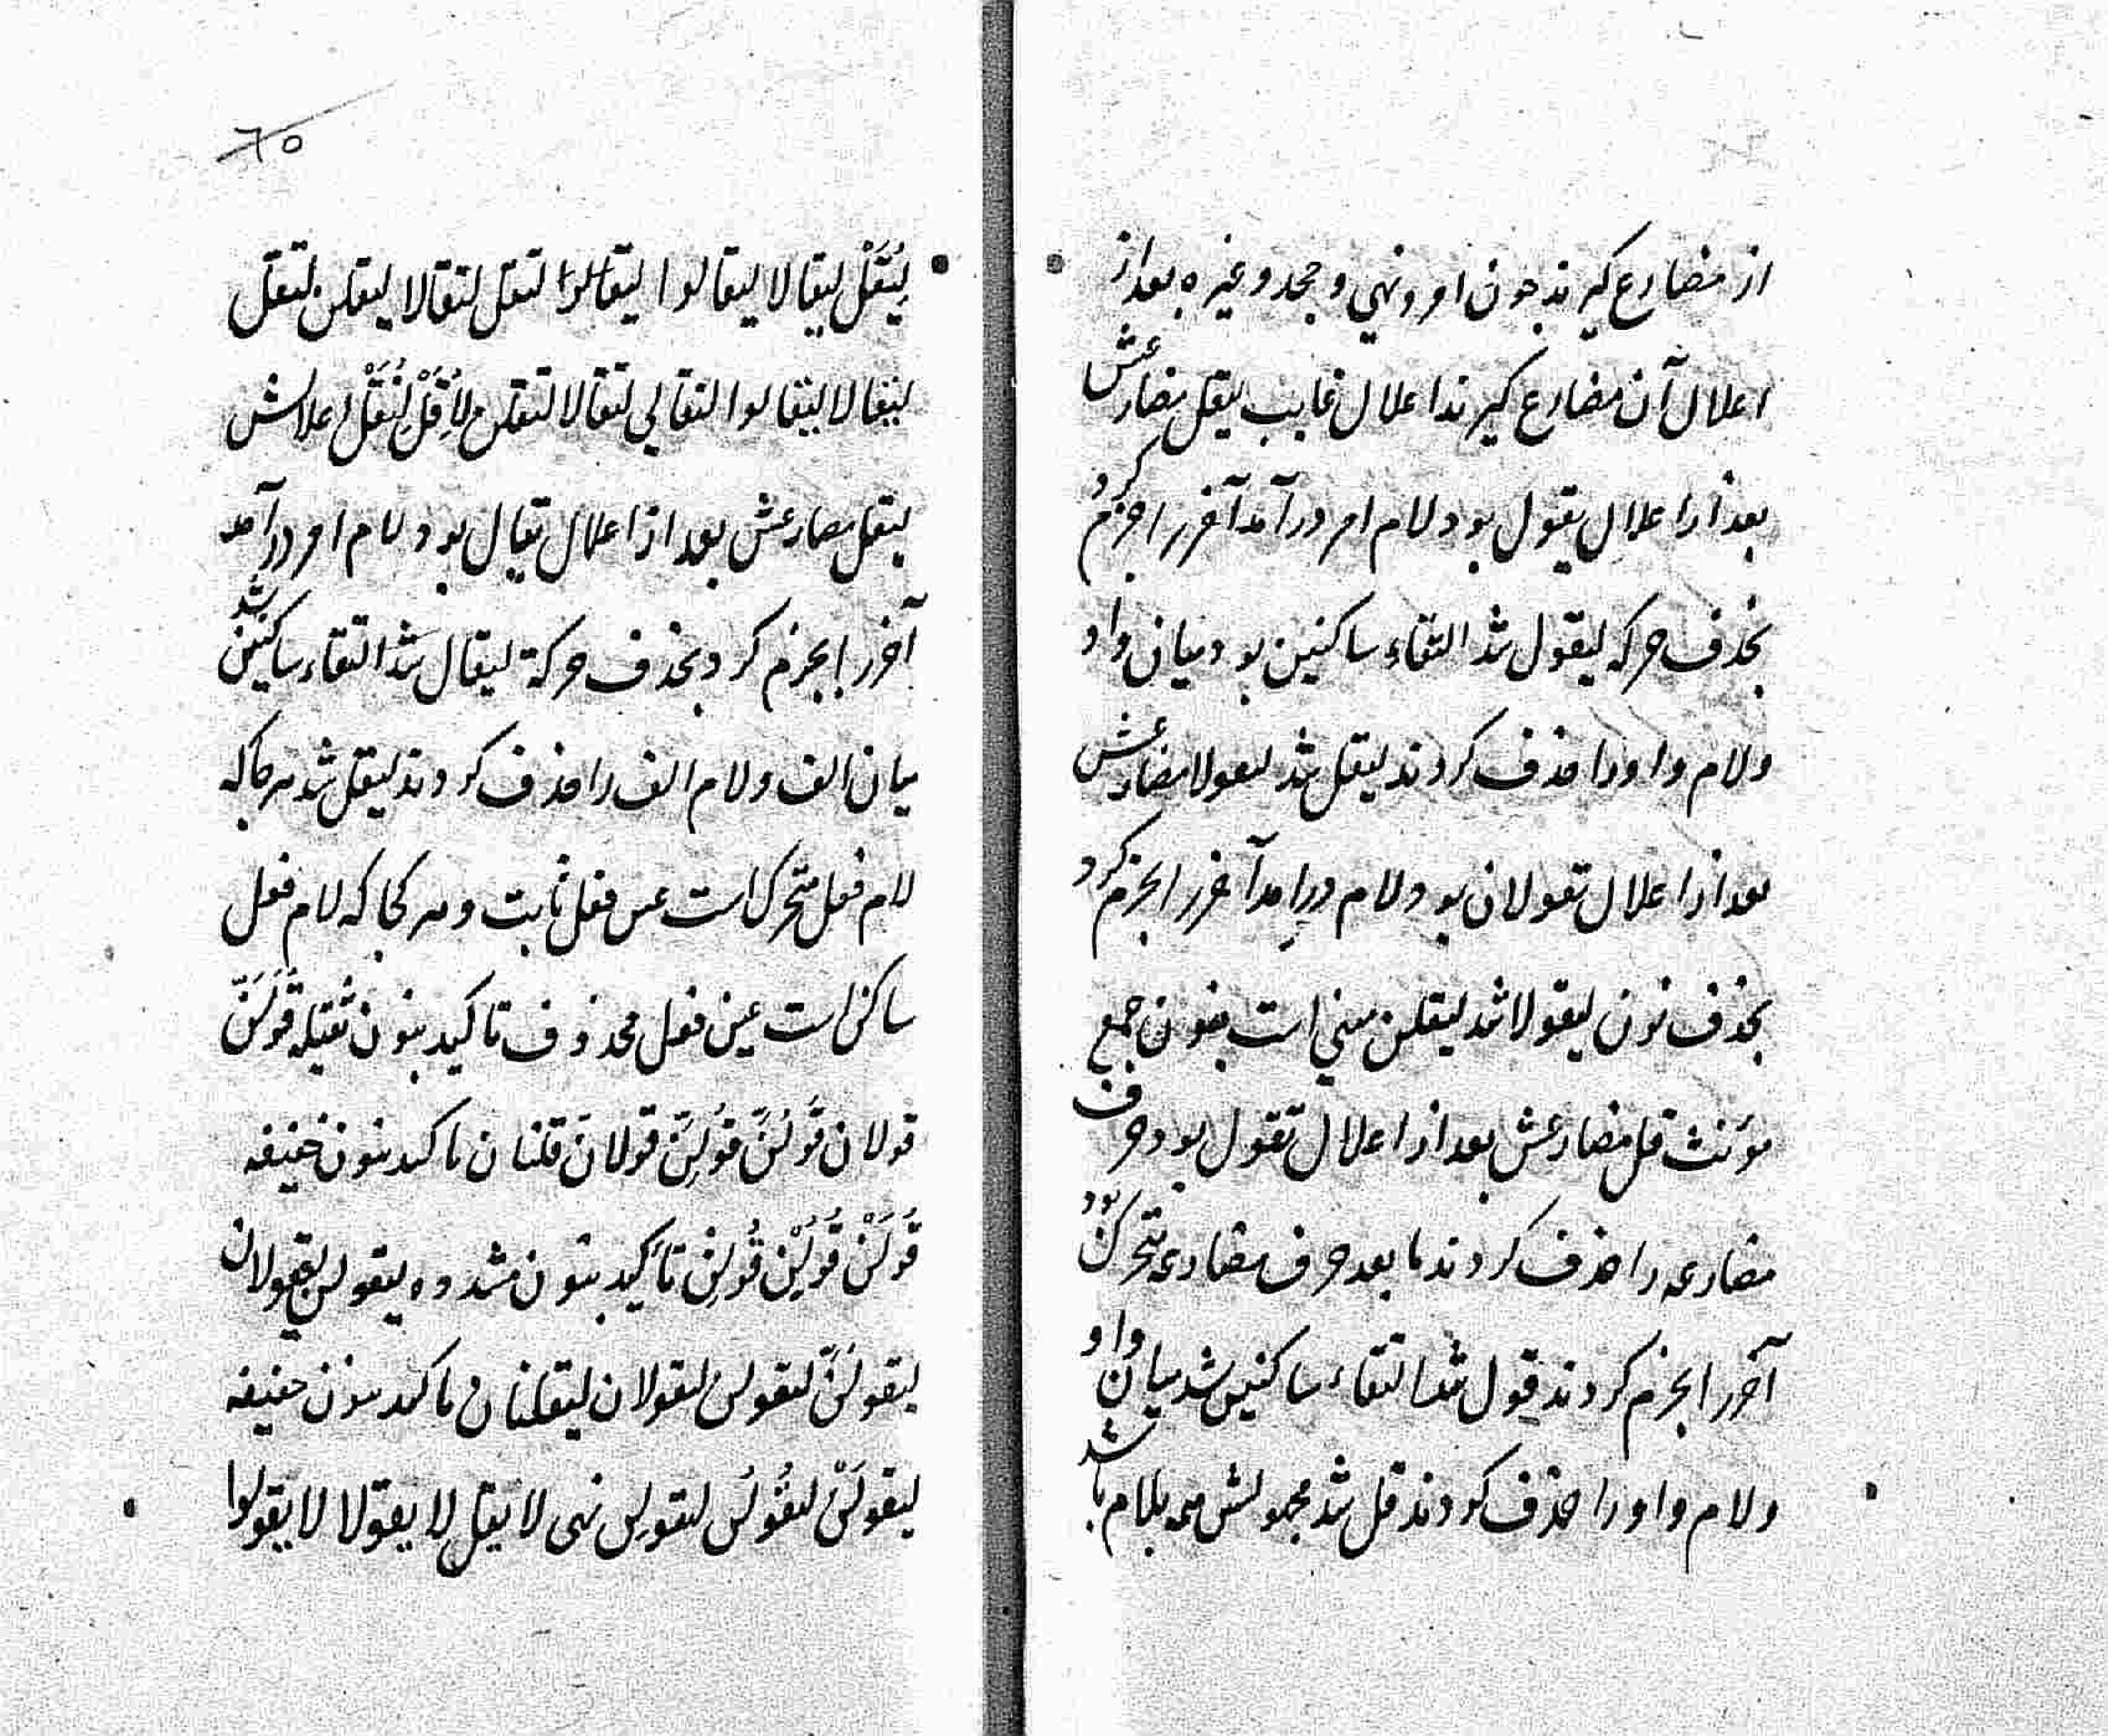 از مضارع کیرند جون امر و نهی و جحد و غیره بعد از
اعلال آن مضارع کیرند اعلال غایب لیقل مضارعش
بعد از اعلال یقول بود لام امر درآمد آخر را جزم کرد
بحذف حرکه لیقول شد التقاء ساکنین بود میان واو
ولام واو را حذف کردند لیقل شد لیقولا مضارعش
بعد از اعلال یقولان بود لام درامد آخر را بجزم کرد
بحذف نون لیقولا شد لیقلن مبنی است بنون جمع
مؤنث قل مضارعش بعد از اعلال تقول بود حرف
مضارعه را حذف کردند ما بعد حرف مضارعه متحرک بود
آخر را بجزم کردند قول شد التقاء ساکنین شد میان واو
ولام واو را حذف کردند قل شد مجهولش همه بلام باشد
٦٥
لِیُقَلْ لیقالا لیقالوا لتقل لتقالا لیقلن لتقل
لتقالا لتقالوا لتقالی لتقالا لتقلن لِاُقَلْ لِنُقَلْ اعلالش
لیقل مضارعش بعد از اعلال یقال بود لام امر درآمد
آخر را بجزم کرد بحذف حرکة لیقال شد التقاء ساکنین شد
میان الف ولام الف را حذف کردند لیقل شد هرکاکه
لام فعل متحرک است عین فعل ثابت و هر کجا که لام فعل
ساکن است عین فعل محذوف تاکید بنون ثقیله قُولَنَّ
قولان قُولُنَّ قُولِنَّ قولانّ قلنان تاکید بنون خفیفه
قُولَنْ قُولُنْ قُولِنْ تأکید بنون مشدده لیقولن لیقولان
لیقولُنَّ لتقولن لتقولان لیقلنان تاکید بنون خفیفه
لیقولَنْ لیقُولُن لتقولن نهی لا یقل لا یقولا لا یقولوا